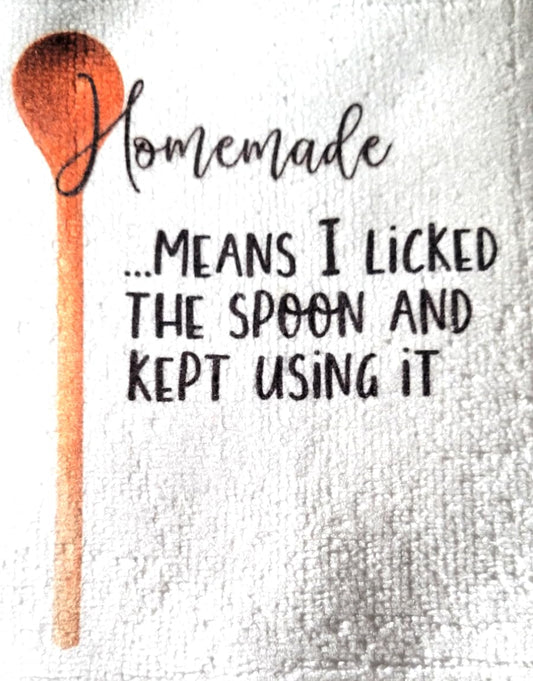 Homemade
...MEANS I LiCKED
THE SPOON AND
KEPT USiNG iT